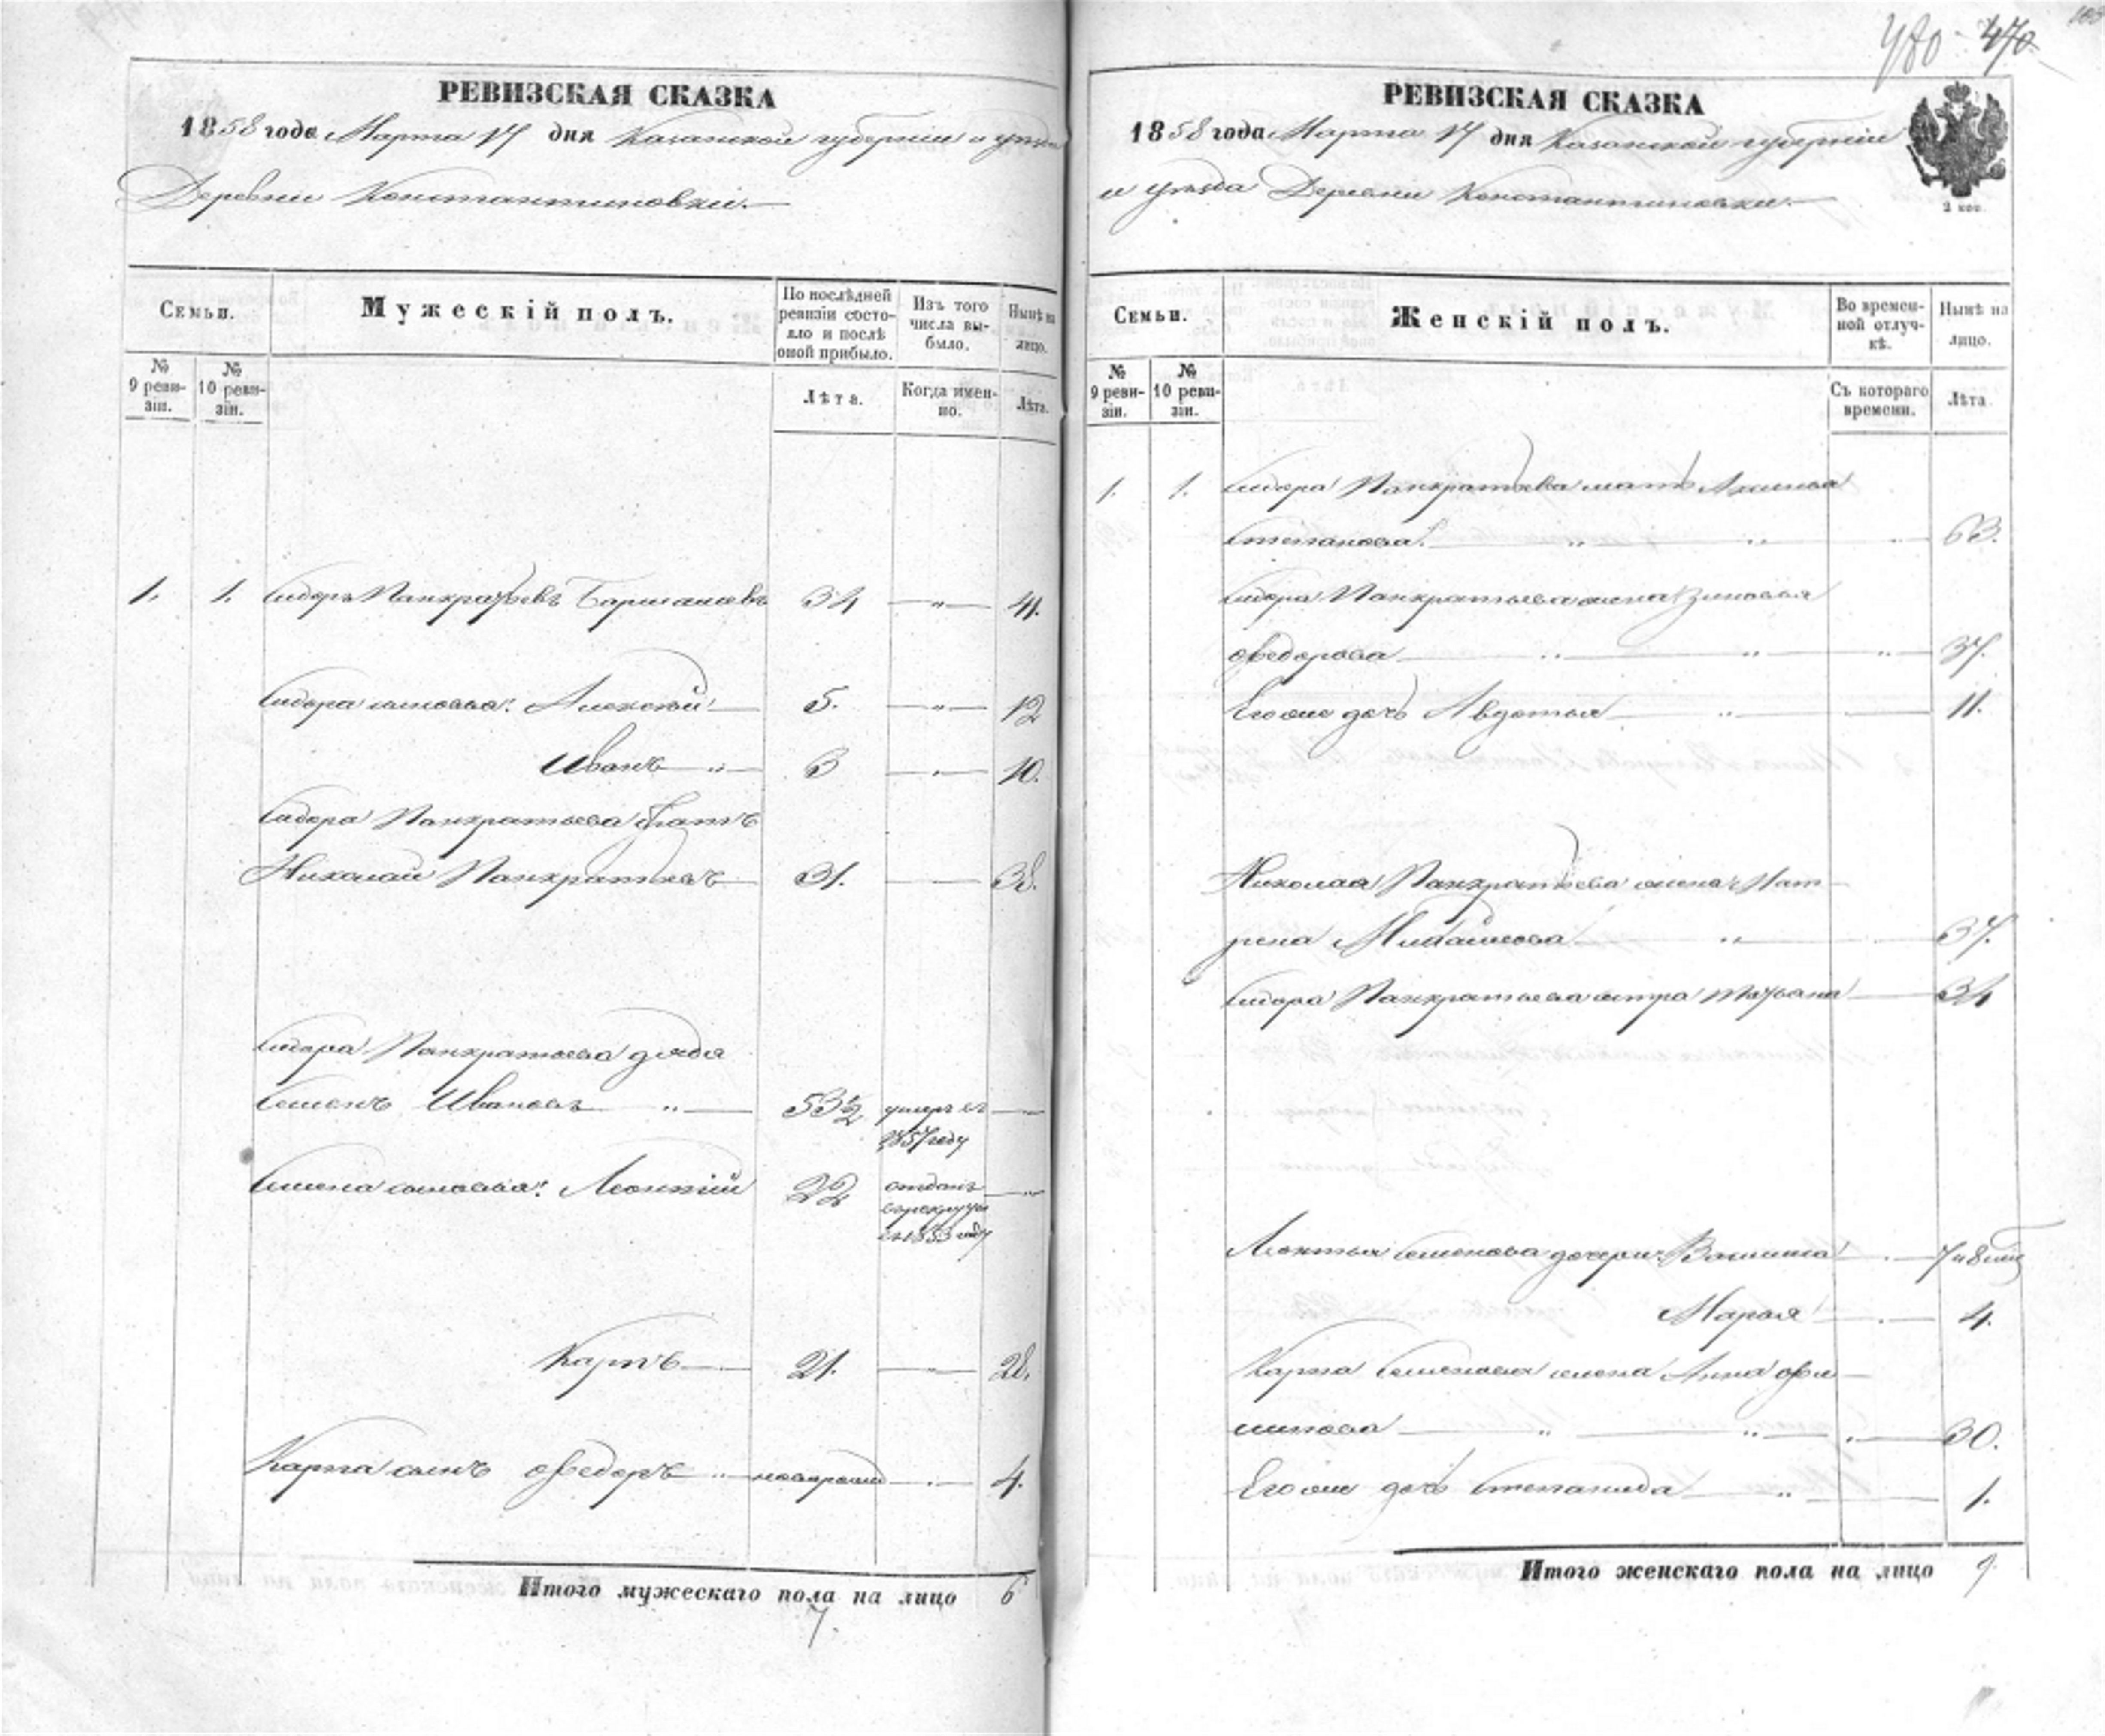 РЕВИЗСКАЯ СКАЗКА
1858 года Марта 17 дня Казанской губернiи и уѣзда
Деревни Константиновки.
Семьи.
Мужескiй полъ.
По послѣдней ревизiи состояло и послѣ оной прибыло.
Изъ того числа выбыло.
Нынѣ на лицо.
№ 9 ревизiи.
№ 10 ревизiи.
Лѣта.
Когда именно.
Лѣта.
1. 1. Сидоръ Панкратьевъ 34 — „ — 41.
Сидора сыновья: Алексѣй — 5. — „ — 12
Иванъ — „ — 3 — „ — 10.
Сидора Панкратьева братъ
Николай Панкратьевъ — 31. — 38.
Сидора Панкратьева дядя
Семенъ Ивановъ — „ — 53½ умеръ въ — „ —
1857 году
Семена сыновья: Леонтiй 22 отданъ — „ —
в рекруты
въ 1853 году
Карпъ — 21. — „ — 28.
Карпа сынъ Ѳедоръ — „ — новорожд — 4.
Итого мужескаго пола на лицо 6
7.
480 470
РЕВИЗСКАЯ СКАЗКА
1858 года Марта 17 дня Казанской губернiи
и уѣзда Деревни Константиновки. —
2 коп.
Семьи.
Женскiй полъ.
Во временной отлучкѣ.
Нынѣ на лицо.
№ 9 ревизiи.
№ 10 ревизiи.
Съ котораго времени.
Лѣта.
1. 1. Сидора Панкратьева мать Аксинья
Степанова. — „ — „ — „ — 63.
Сидора Панкратьева жена Зиновья
Ѳедорова — „ — „ — „ — 37.
Его же дочь Авдотья — „ — 11.
Николая Панкратьева жена Мат-
рена — „ — 37.
Сидора Панкратьева сестра Татьяна — 34
Леонтья Семенова дочери: — 7 и 8 мѣ
Марья — 4.
Карпа Семенова жена Анна Фи-
липова — „ — „ — „ — 30.
Его же дочь Степанида — „ — 1.
Итого женскаго пола на лицо 9.